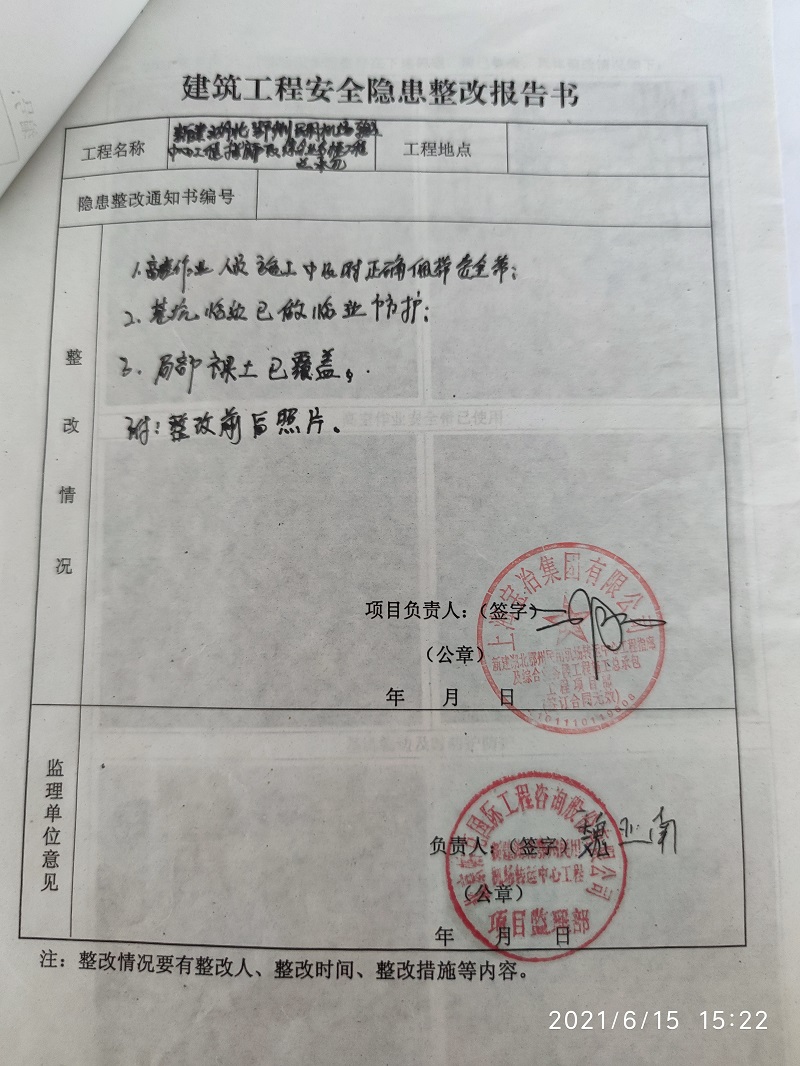 建筑工程安全隐患整改报告书
工程名称
新建湖北鄂州民用机场转运
中心工程
总承包
工程地点
隐患整改通知书编号
整改情况
1.高空作业人员施工中及时正确佩带安全带;
2.基坑临边已做临边防护;
3.局部裸土已覆盖。
附:整改前后照片。
项目负责人:(签字)
(公章)
年 月 日
上海宝冶集团有限公司
新建湖北鄂州民用机场转运中心工程
工程施工总承包
工程项目部
(签订合同无效)
监理单位意见
负责人:(签字)
(公章)
年 月 日
国际工程咨询股份有限公司
机场转运中心工程
项目监理部
注:整改情况要有整改人、整改时间、整改措施等内容。
高空作业安全带已使用
2021/6/15 15:22